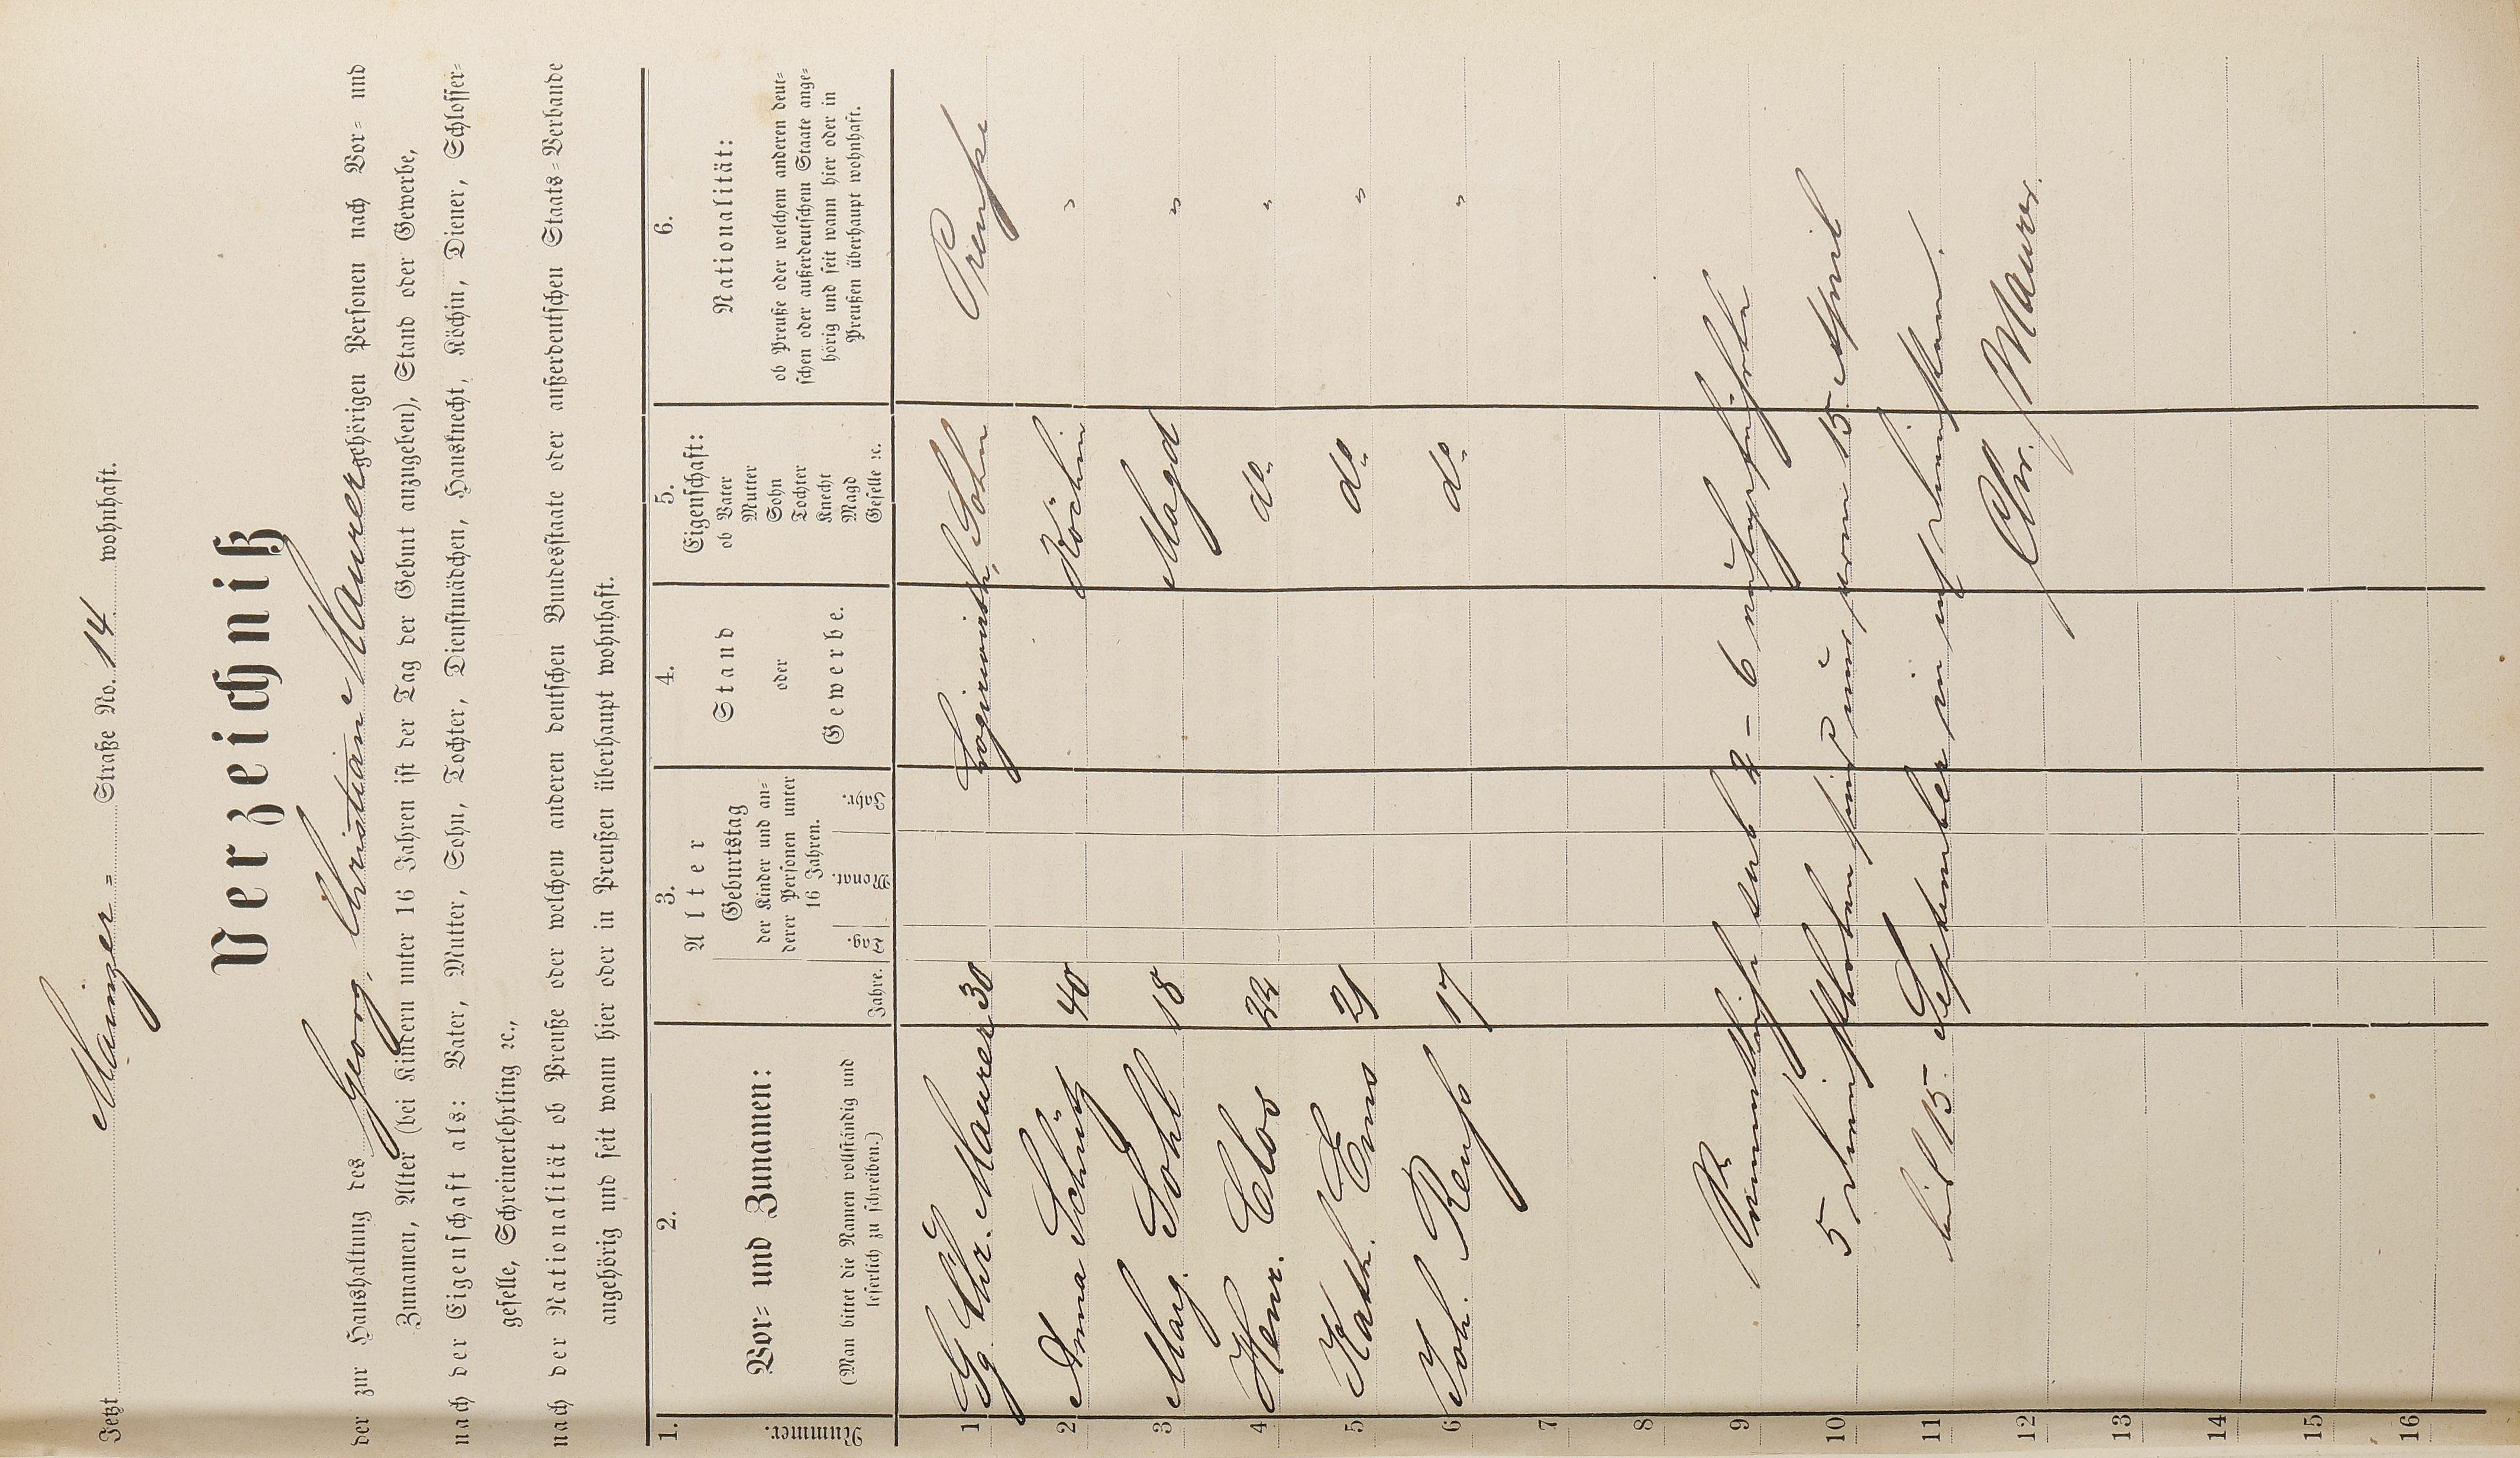 Jetzt Mainzer = Straße No. 14 wohnhaft.
Verzeichniß
der zur Haushaltung des Georg, Christian Maurer gehörigen Personen nach Vor= und
Zunamen, Alter (bei Kindern unter 16 Jahren ist der Tag der Geburt anzugeben), Stand oder Gewerbe,
nach der Eigenschaft als: Vater, Mutter, Sohn, Tochter, Dienstmädchen, Hausknecht, Köchin, Diener, Schlosser=
geselle, Schreinerlehrling ꝛc.,
nach der Nationalität ob Preuße oder welchem anderen deutschen Bundesstaate oder außerdeutschen Staats=Verbande
angehörig und seit wann hier oder in Preußen überhaupt wohnhaft.
1. 2. 3. 4. 5. 6.
Nummer.
Vor= und Zunamen:
(Man bittet die Namen vollständig und
leserlich zu schreiben.)
Alter
Geburtstag
der Kinder und an=
derer Personen unter
16 Jahren.
Jahre. Tag. Monat. Jahr.
Stand
oder
Gewerbe.
Eigenschaft:
ob Vater
Mutter
Sohn
Tochter
Knecht
Magd
Geselle ꝛc.
Nationalität:
ob Preuße oder welchem anderen deut=
schen oder außerdeutschem Staate ange=
hörig und seit wann hier oder in
Preußen überhaupt wohnhaft.
1 Gg. Chr. Maurer 30 Logirwirth, Sohn Preuße
2 Anna Schütz 40 Köchin "
3 Marg. Sohl 18 Magd "
4 Henr. Clos 22 do "
5 Kath. Ems 21 do "
6 Joh. Renß 17 do "
7
8
9 sub 2 – 6 aufgeführte
10 5 Dienstboten sind nur vom 15. April
11 bis 15. September in
12 Chr. Maurer.
13
14
15
16